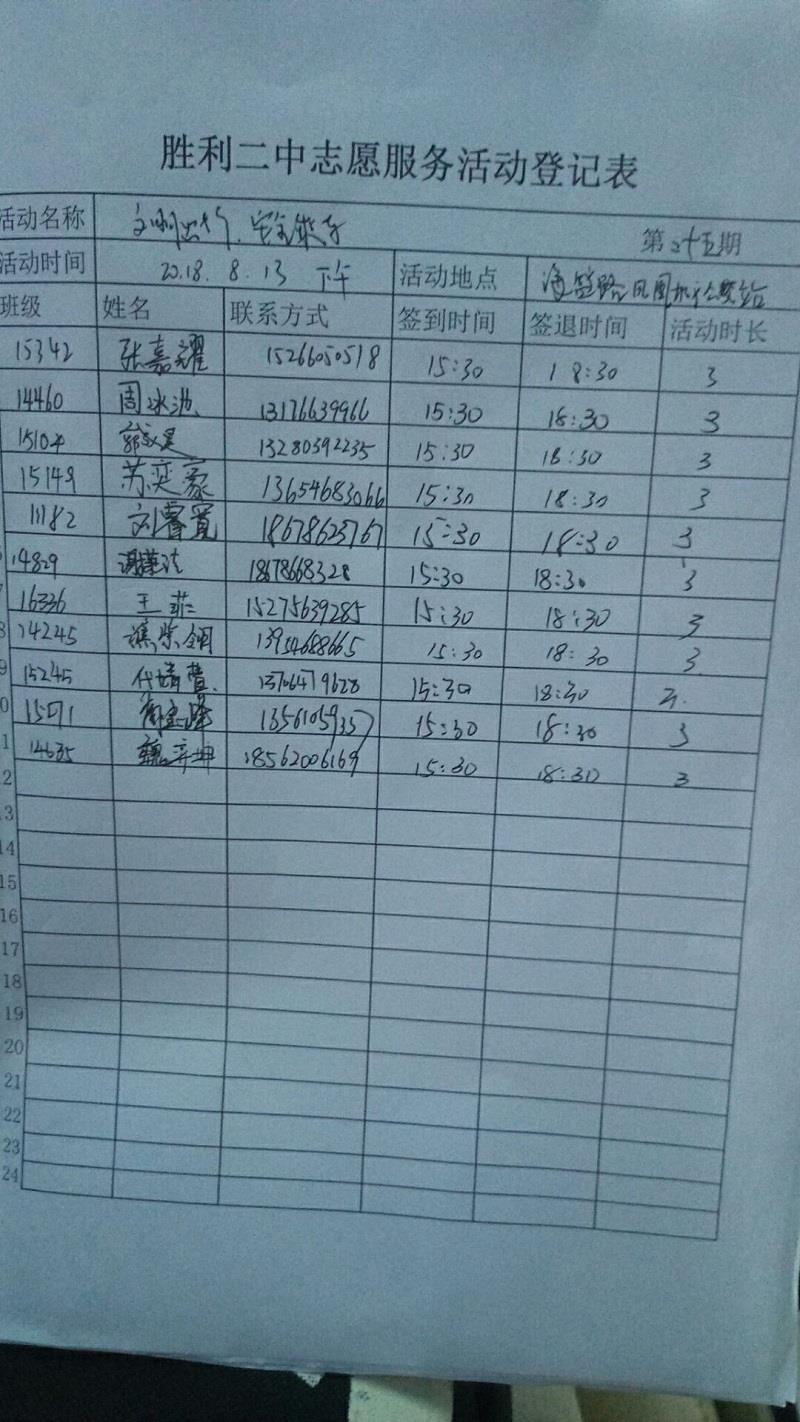 胜利二中志愿服务活动登记表
活动名称 文明出行、安全乘车 第二十五期
活动时间 2018.8.13 下午 活动地点 海盛路凤凰城公交站
班级 姓名 联系方式 签到时间 签退时间 活动时长
15342 张嘉耀 15266050518 15:30 18:30 3
14460 周冰池 13176639966 15:30 18:30 3
15104 13280392235 15:30 18:30 3
15149 苏奕豪 13654683066 15:30 18:30 3
11182 刘睿宽 18678623767 15:30 18:30 3
14829 18678668328 15:30 18:30 3
16336 王菲 15275639285 15:30 18:30 3
8 14245 13954688665 15:30 18:30 3
9 15245 代靖萱 13706479628 15:30 18:30 3.
0 15071 13561059357 15:30 18:30 3
1 14635 魏辛坤 18562006169 15:30 18:30 3
2
13
14
15
16
17
18
19
20
21
22
23
24